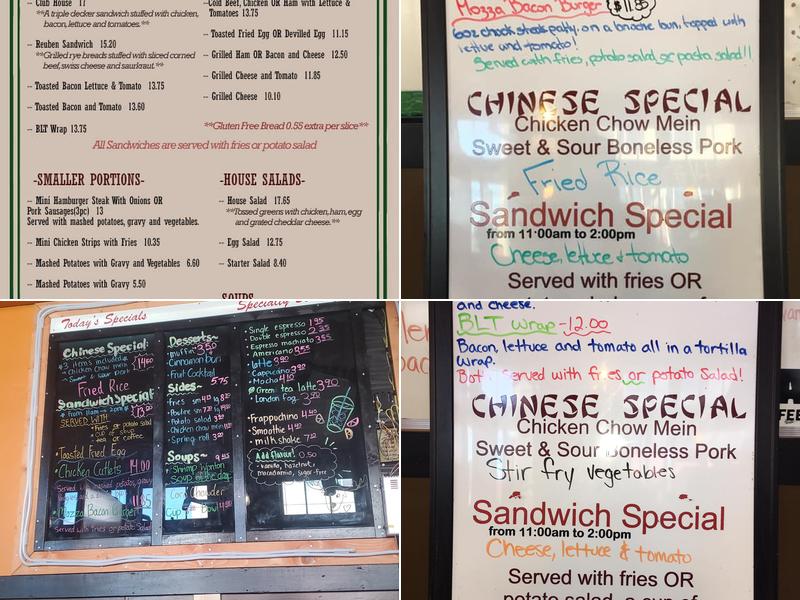 -- Club House 17
**A triple decker sandwich stuffed with chicken,
bacon, lettuce and tomatoes.**
-- Reuben Sandwich 15.20
**Grilled rye breads stuffed with sliced corned
beef, swiss cheese and saurkraut.**
-- Toasted Bacon Lettuce & Tomato 13.75
-- Toasted Bacon and Tomato 13.60
-- BLT Wrap 13.75
-- Cold Beef, Chicken OR Ham with Lettuce &
Tomatoes 13.75
-- Toasted Fried Egg OR Devilled Egg 11.15
-- Grilled Ham OR Bacon and Cheese 12.50
-- Grilled Cheese and Tomato 11.85
-- Grilled Cheese 10.10
**Gluten Free Bread 0.55 extra per slice**
All Sandwiches are served with fries or potato salad
-SMALLER PORTIONS-
-- Mini Hamburger Steak With Onions OR
Pork Sausages(3pc) 13
Served with mashed potatoes, gravy and vegetables.
-- Mini Chicken Strips with Fries 10.35
-- Mashed Potatoes with Gravy and Vegetables 6.60
-- Mashed Potatoes with Gravy 5.50
-HOUSE SALADS-
-- House Salad 17.65
**Tossed greens with chicken, ham, egg
and grated cheddar cheese.**
-- Egg Salad 12.75
-- Starter Salad 8.40
SOUPS
Mozza Bacon Burger $11.85
6oz chuck steak patty, on a brioche bun, topped with
lettuce and tomato!
Served with fries, potato salad or pasta salad!!
CHINESE SPECIAL
Chicken Chow Mein
Sweet & Sour Boneless Pork
Fried Rice
Sandwich Special
from 11:00am to 2:00pm
Cheese, lettuce & tomato
Served with fries OR
Today's Specials
Chinese Special
3 items included
Chicken chow mein
Sweet & Sour Pork
14.50
Fried Rice
Sandwich Special
from 11am - 2pm
13.00
SERVED WITH:
Fries or potato salad
cup of soup
tea or coffee
Toasted Fried Egg
Chicken Cutlets 14.00
Served with mashed potatoes, gravy
Mozza Bacon Burger 11.85
Served with fries or potato Salad
Desserts~
muffin 3.50
Cinnamon bun
Fruit Cocktail
5.75
Sides~
Potato salad
Chicken chow mein
Spring roll
Soups~
Shrimp Wonton
SOUP of the day
Corn Chowder
Cup Bowl
Specialty
Single espresso 1.95
Double espresso 2.35
Espresso machiato 3.55
Americano 3.55
Latte 3.90
Cappuccino 3.90
Mocha 4.10
Green tea latte 3.90
London Fog 3.90
Frappuchino 4.40
Smoothie 4.40
milkshake
Add flavour! 0.50
- vanilla, hazelnut,
macadamia, sugar-free
and cheese.
BLT wrap -12.00
Bacon, lettuce and tomato all in a tortilla
wrap.
Both served with fries or potato Salad!
CHINESE SPECIAL
Chicken Chow Mein
Sweet & Sour Boneless Pork
Stir fry vegetables
Sandwich Special
from 11:00am to 2:00pm
Cheese, lettuce & tomato
Served with fries OR
potato salad, a cup of